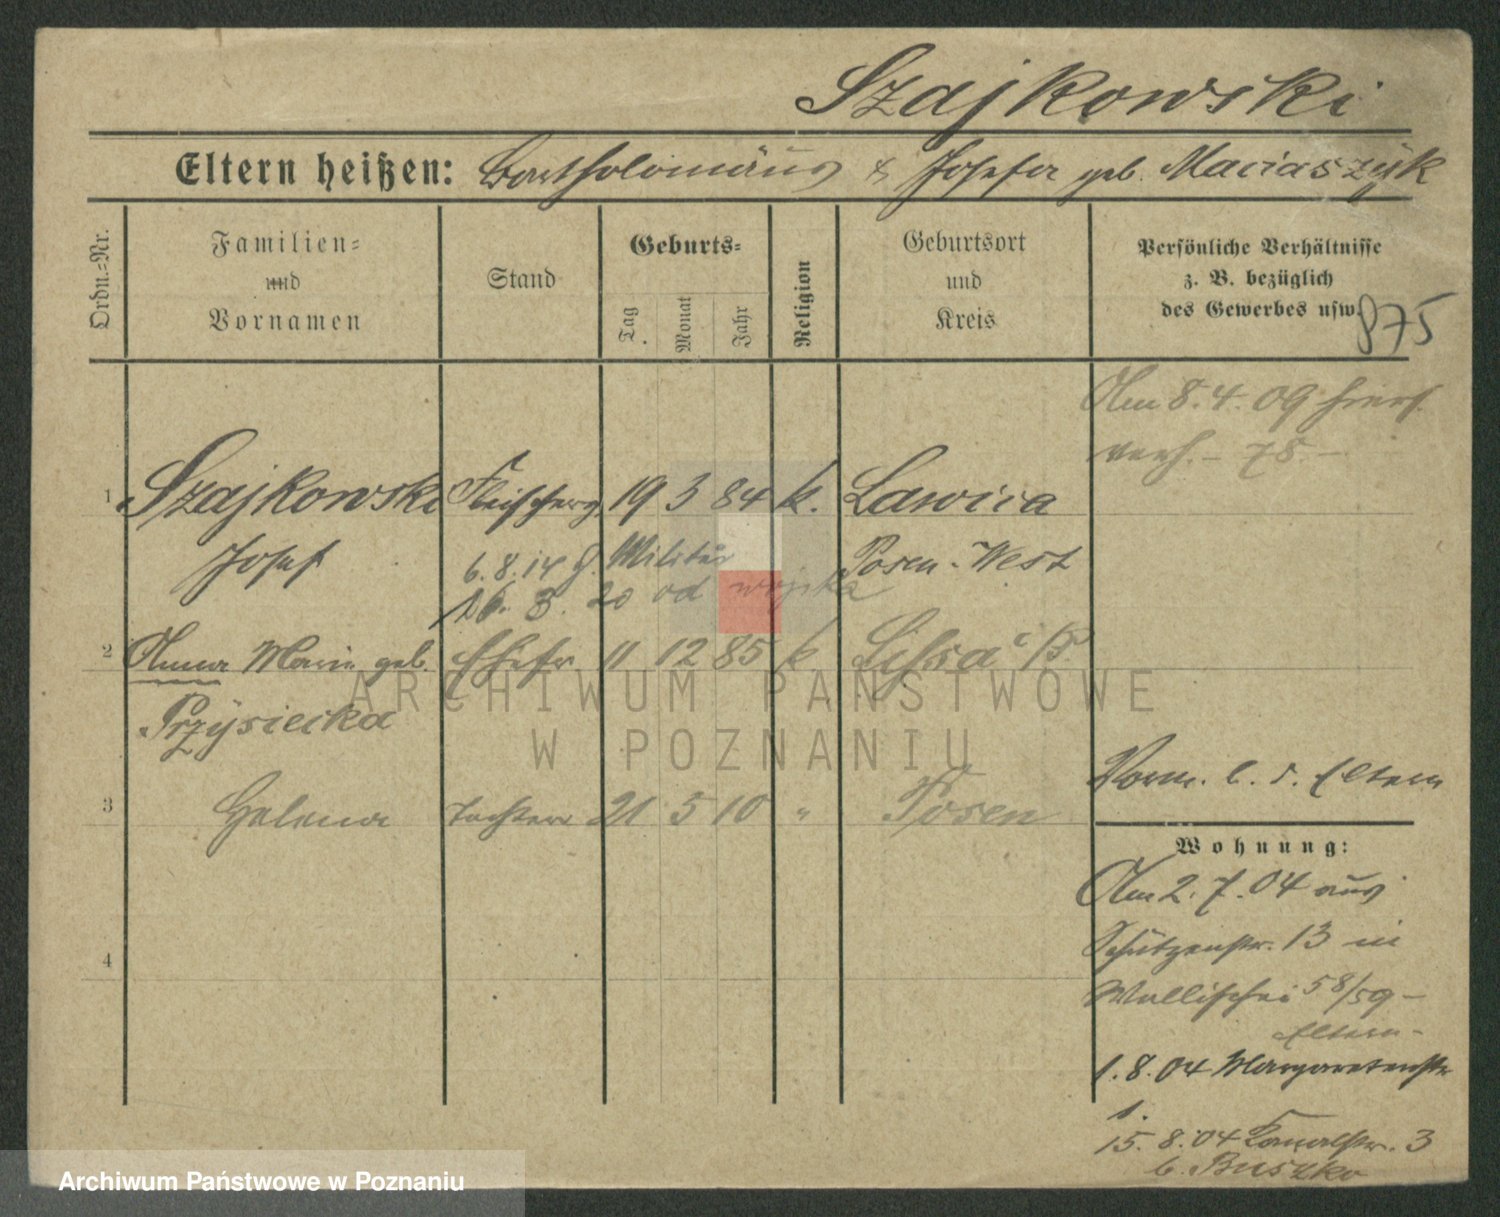 Szajkowski
Eltern heißen: Bartholomäus & Josefa geb. Maciaszyk
Ordn.=Nr.
Familien=
und
Vornamen
Stand
Geburts=
Tag
Monat
Jahr
Religion
Geburtsort
und
Kreis
Persönliche Verhältnisse
z. B. bezüglich
des Gewerbes usw.
875
Am 8.4.09 hiers.
verh. – 78. –
1 Szajkowski Fleischerg. 19 3 84 k. Lawica
Josef
6.8.14 z. Militär
Posen-West
16. 3. 20 od wojska
2 Anna Marie geb. Ehefr. 11 12 85 k Lissa i/P.
Przysiecka
Vorm. b. d. Eltern
3 Helena Tochter 21 5 10 " Posen
Wohnung:
Am 2.7.04 aus
Schützenstr. 13 in
4
Wallischei 58/59 –
Eltern –
1.8.04 Margaretenstr
1.
15.8.04 Kanalstr. 3
b. Buszko
ARCHIWUM PAŃSTWOWE
W POZNANIU
Archiwum Państwowe w Poznaniu